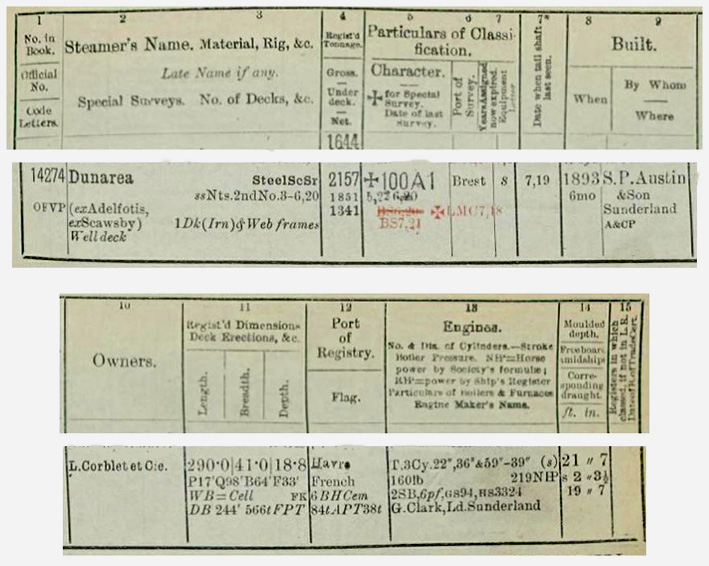 1
No. in
Book.
Official
No.
Code
Letters.
2 3
Steamer's Name. Material, Rig, &c.
Late Name if any.
Special Surveys. No. of Decks, &c.
4
Regist'd
Tonnage.
Gross.
Under
deck.
Net.
1644
5 6 7
Particulars of Classi-
fication.
Character.
✠ for Special
Survey.
Date of last
Survey.
Port of
Survey.
Years Assigned
now expired.
Equipment
Letter
7*
Date when tail shaft
last seen.
8 9
Built.
When
By Whom
Where
14274 Dunarea SteelScSr 2157 ✠100A1 Brest 8 7,19 1893 S.P.Austin
ssNts.2ndNo.3-6,20 1851 6mo &Son
OFVP (exAdelfotis, 1341 ✠LMC7,18 Sunderland
exScawsby) 1Dk(Irn)&Web frames BS7,21 A&CP
Well deck
10
Owners.
11
Regist'd Dimensions
Deck Erections, &c.
Length.
Breadth.
Depth.
12
Port
of
Registry.
Flag.
13
Engines.
No. & Dia. of Cylinders.—Stroke
Boiler Pressure. NH=Horse
power by Society's formulæ;
RH=power by Ship's Register
Particulars of Boilers & Furnaces
Engine Maker's Name.
14
Moulded
depth.
Freeboard
amidships
Corre-
sponding
draught.
ft. in.
15
Registers in which
classed, if not in L.R.
L.Corblet et Cie. 290·0 41·0 18·8 Havre T.3Cy.22",36"&59"-39" (s) 21 " 7
P17'Q98'B64'F33' French 160lb 219NHP s 2 "3½
WB=Cell FK 6BHCem 2SB,6pf,GS94,HS3324 19 " 7
DB 244' 566tFPT 84tAPT38t G.Clark,Ld.Sunderland